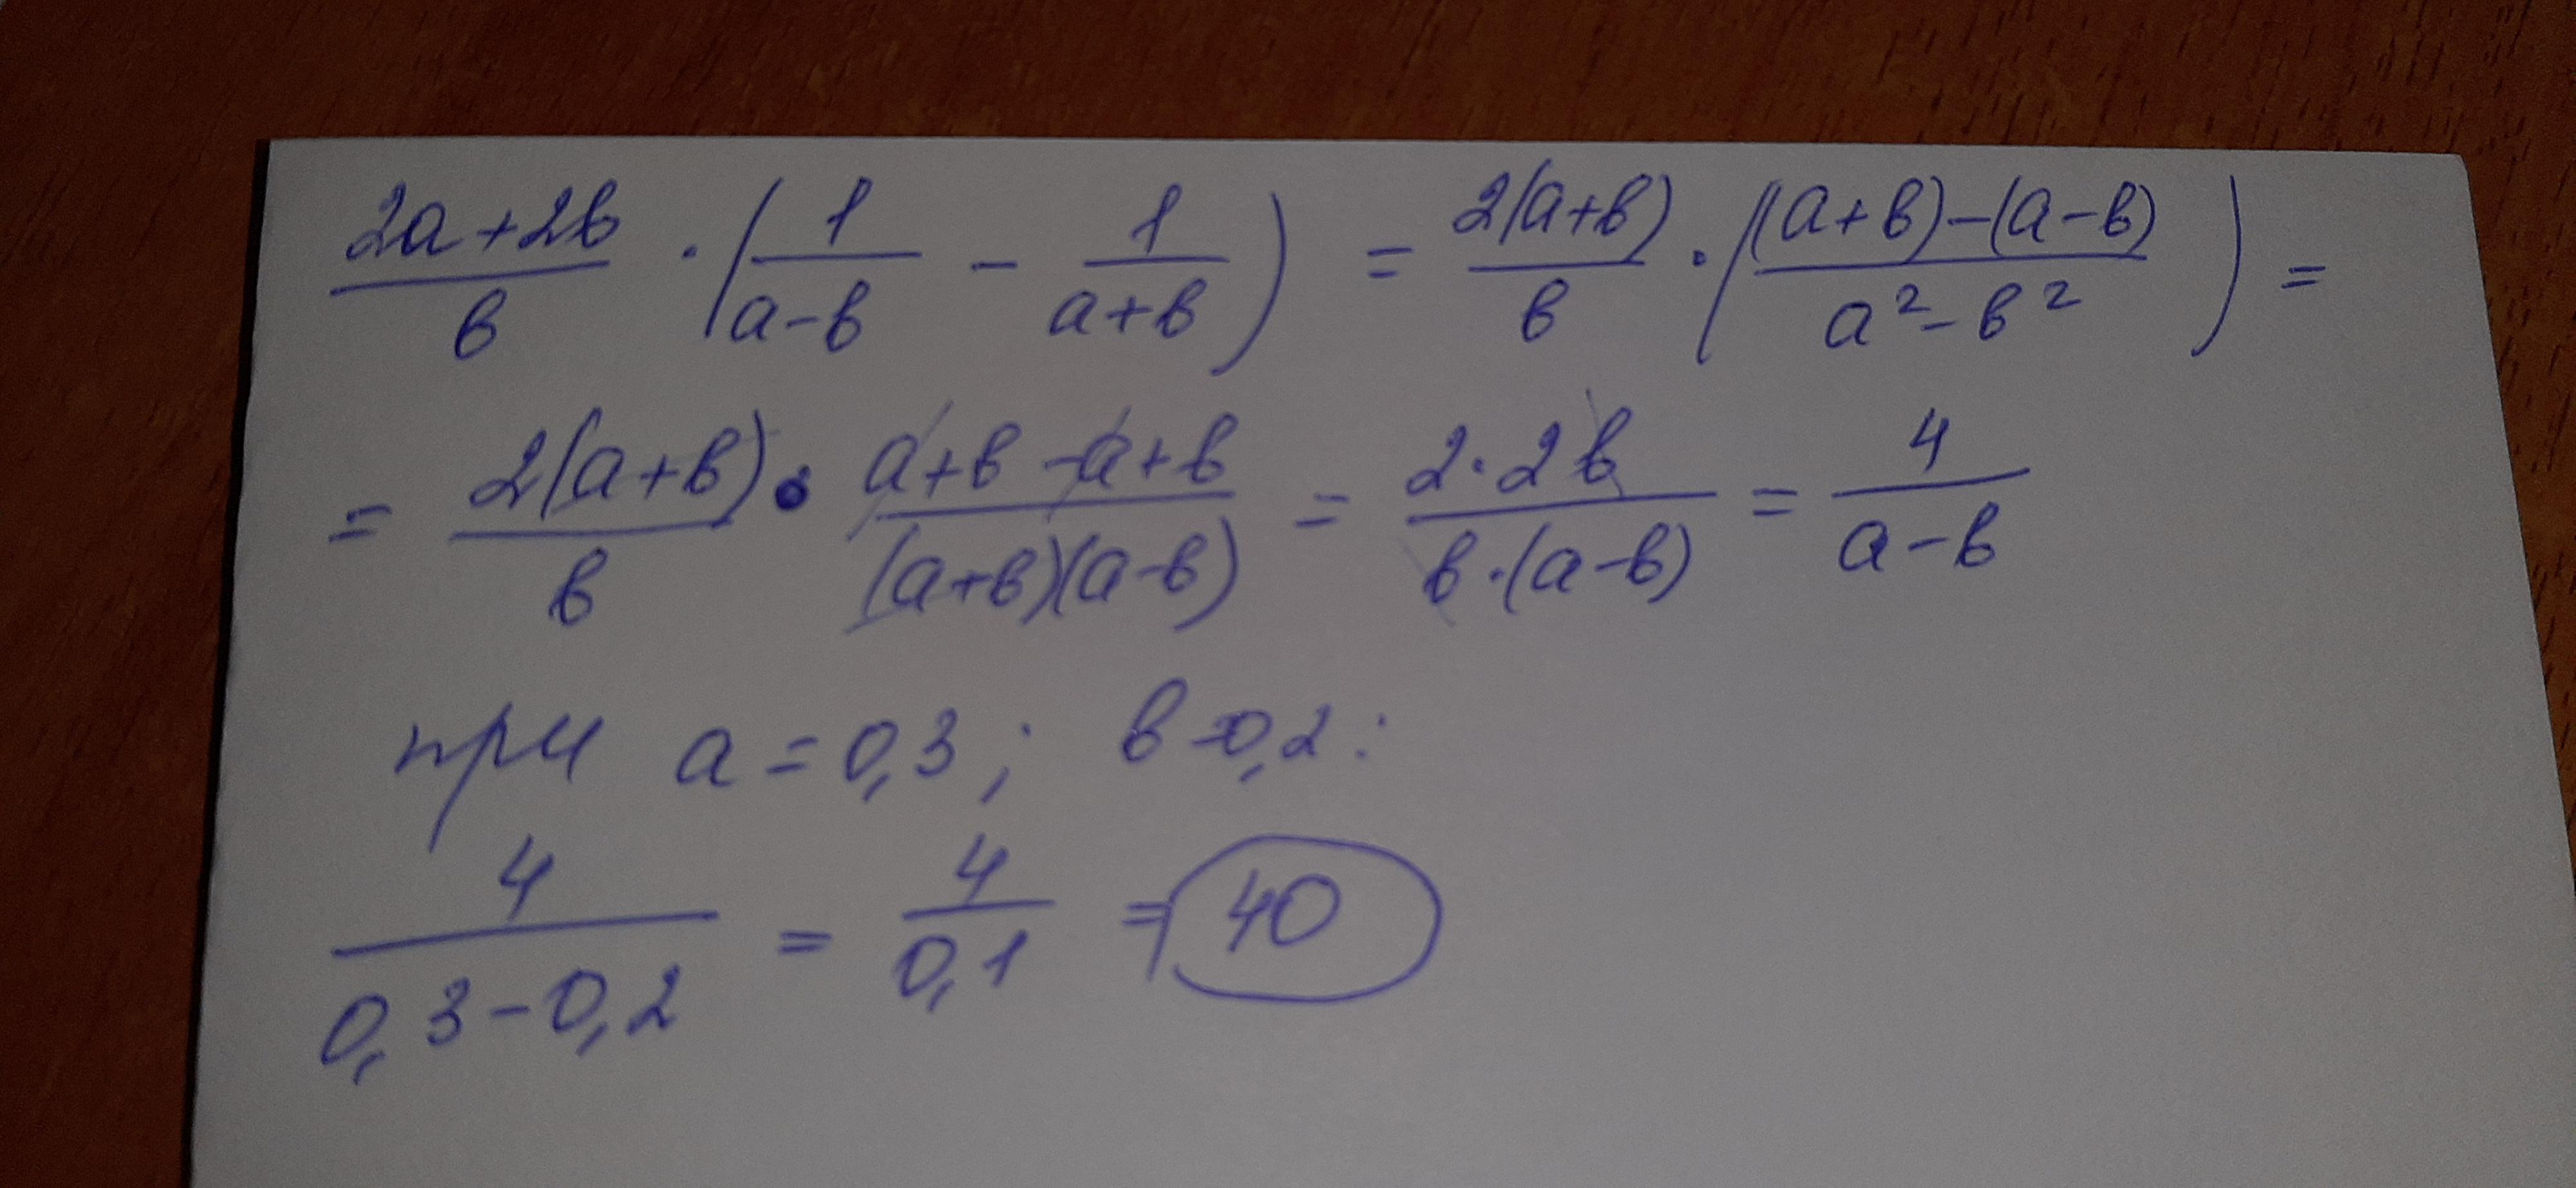 (2a+2в)/в · (1/(a-в) - 1/(a+в)) = 2(a+в)/в · (((a+в)-(a-в))/(a²-в²)) =
= 2(a+в)/в · (a+в-a+в)/((a+в)(a-в)) = (2·2в)/(в·(a-в)) = 4/(a-в)
при a=0,3; в=0,2:
4/(0,3-0,2) = 4/0,1 = 40